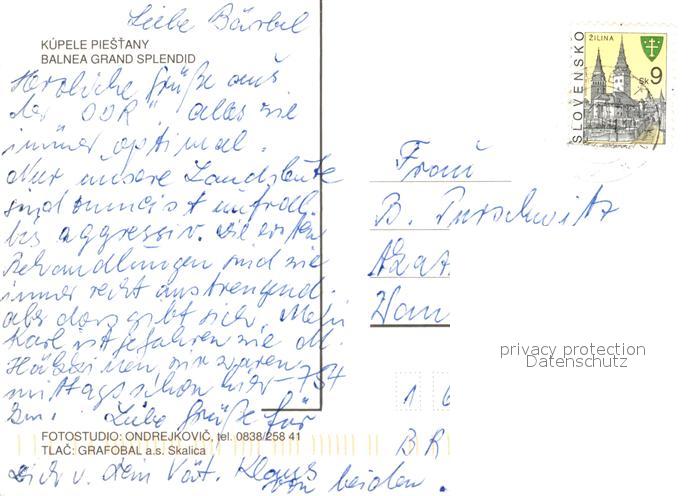 Liebe Bärbel
KÚPELE PIEŠŤANY
BALNEA GRAND SPLENDID
Herzliche Grüße aus
der "DDR", alles wie
immer optimal.
Nur unsere Landsleute
sind zumeist unfreundl.
bis aggressiv. Die ersten
Behandlungen sind wie
immer recht anstrengend.
aber das gibt sich. Mein
Karl ist gefahren wie
wir waren
mittags schon hier - 754
km. Liebe Grüße für
FOTOSTUDIO: ONDREJKOVIČ, tel. 0838/258 41
TLAČ: GRAFOBAL a.s. Skalica
Dich u. Dein Klaus
von beiden.
SLOVENSKO
ŽILINA
Sk 9
Frau
B.
1 6
BR
privacy protection
Datenschutz